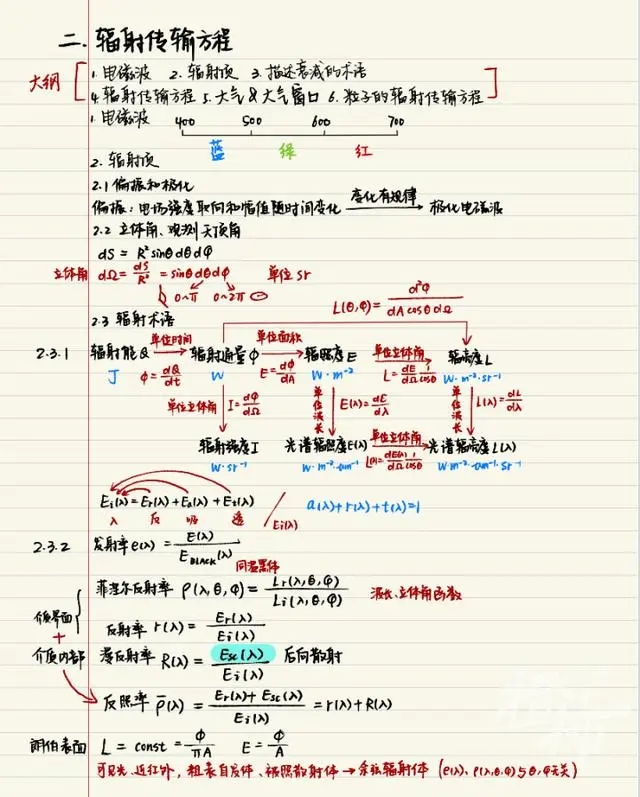 二. 辐射传输方程
大纲
1. 电磁波 2. 辐射项 3. 描述衰减的术语
4. 辐射传输方程 5. 大气 & 大气窗口 6. 粒子的辐射传输方程
1. 电磁波 400 500 600 700
蓝 绿 红
2. 辐射项
2.1 偏振和极化
偏振: 电场强度取向和幅值随时间变化 变化有规律 → 极化电磁波
2.2 立体角、观测天顶角
dS = R² sinθ dθ dφ
立体角 dΩ = dS/R² = sinθ dθ dφ 单位 sr
0~π 0~2π
L(θ,φ) = d²Φ/(dA cosθ dΩ)
2.3 辐射术语
2.3.1 辐射能 Q 单位时间 → 辐射通量 Φ 单位面积 → 辐照度 E 单位立体角 → 辐亮度 L
J Φ = dQ/dt W E = dΦ/dA W·m⁻² L = dE/dΩ 1/cosθ W·m⁻²·sr⁻¹
单位立体角 I = dΦ/dΩ 单位波长 E(λ) = dE/dλ 单位波长 L(λ) = dL/dλ
辐射强度 I 光谱辐照度 E(λ) 单位立体角 → 光谱辐亮度 L(λ)
W·sr⁻¹ W·m⁻²·um⁻¹ L(λ) = dE(λ)/dΩ 1/cosθ W·m⁻²·um⁻¹·sr⁻¹
Ei(λ) = Er(λ) + Ea(λ) + Et(λ) / Ei(λ) a(λ) + r(λ) + t(λ) = 1
入 反 吸 透
2.3.2 发射率 e(λ) = E(λ)/E_BLACK(λ)
同温黑体
菲涅尔反射率 ρ(λ,θ,φ) = Lr(λ,θ,φ)/Li(λ,θ,φ) 波长、立体角函数
介质界面
反射率 r(λ) = Er(λ)/Ei(λ)
+
介质内部 漫反射率 R(λ) = Esc(λ)/Ei(λ) 后向散射
反照率 ρ̄(λ) = (Er(λ) + Esc(λ))/Ei(λ) = r(λ) + R(λ)
朗伯表面 L = const = Φ/πA E = Φ/A
可见光、近红外, 粗表自发体、被照散射体 → 余弦辐射体 (e(λ)、ρ(λ,θ,φ) 与 θ,φ无关)